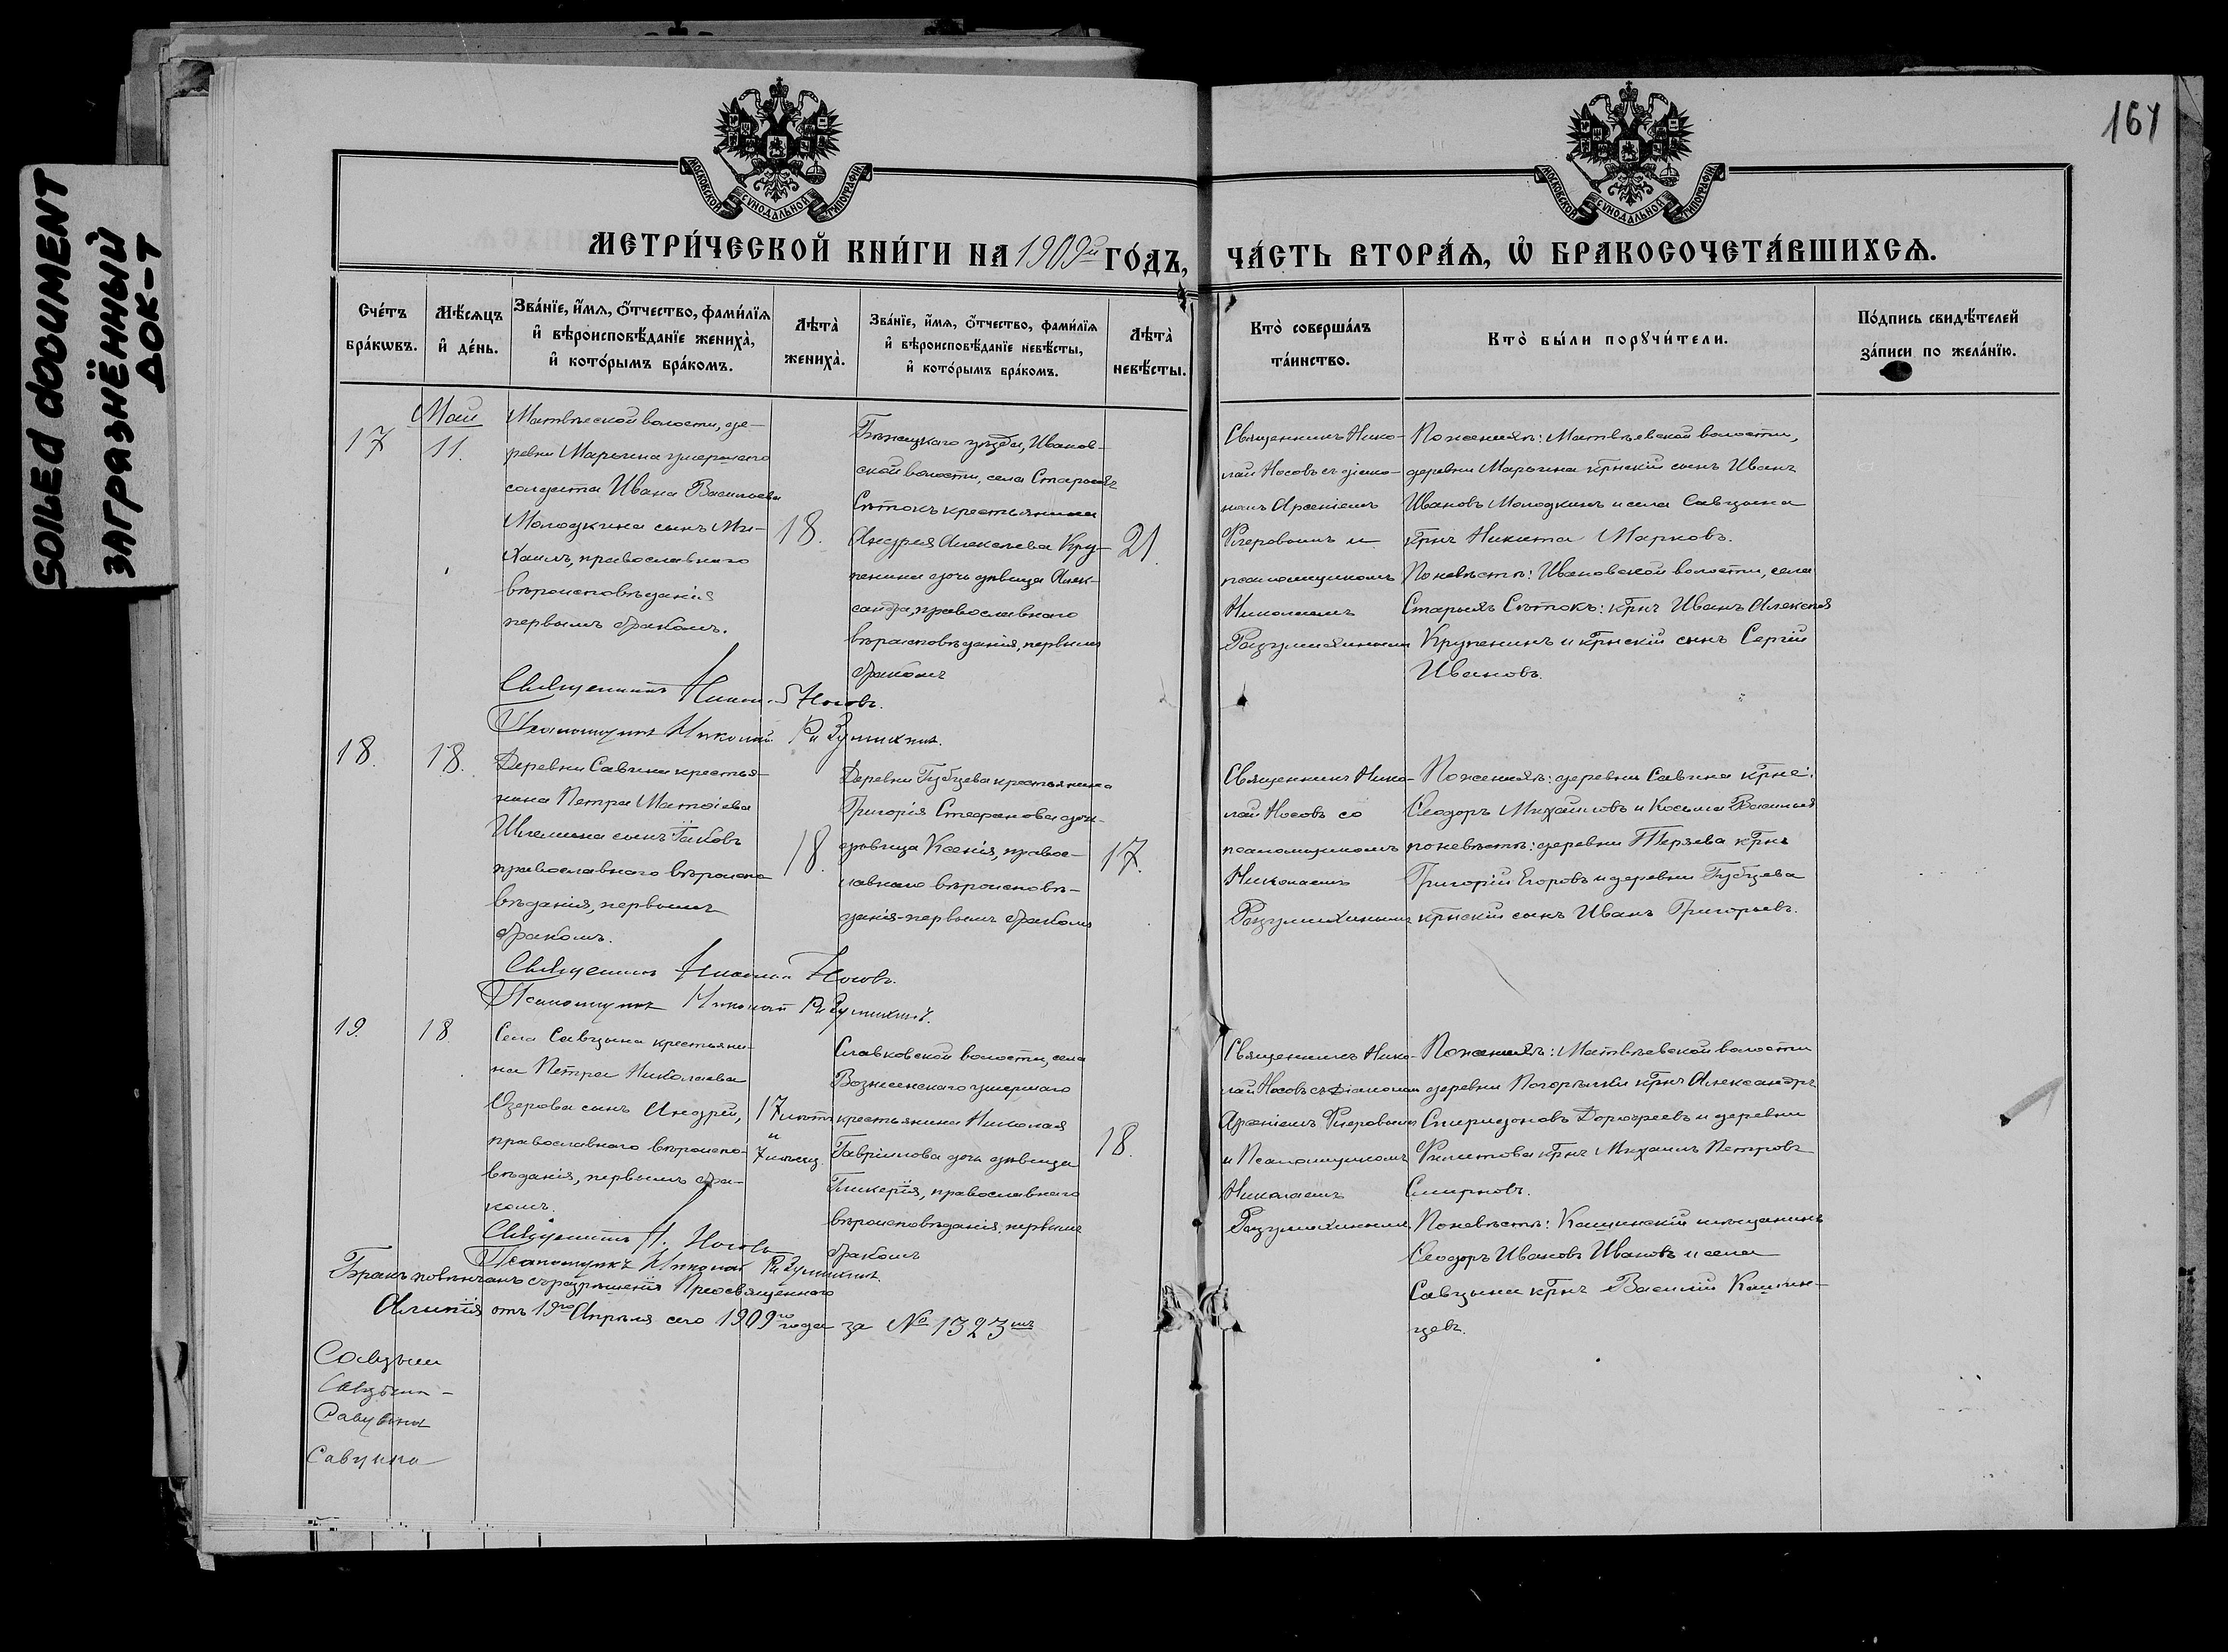 SOILEd dOCUMENT
ЗАГРАЗНЁННЫЙ
ДОК-Т
161
МОСКОВСКОЙ СѴНОДАЛЬНОЙ ТИПОГРАФІИ
МОСКОВСКОЙ СѴНОДАЛЬНОЙ ТИПОГРАФІИ
МЕТРИ́ЧЕСКОЙ КНИ́ГИ НА 1909й ГО́ДЪ,
ЧА́СТЬ ВТОРА́Ѧ, Ѡ҆ БРАКОСОЧЕТА́ВШИХСѦ.
Сче́тъ
бра́кѡвъ.
Мѣ́сѧцъ
и҆ де́нь.
Зва́нїе, и҆́мѧ, ѻ҆́тчество, фами́лїѧ
и҆ вѣроисповѣ́данїе жениха̀,
и҆ кото́рымъ бра́комъ.
Лѣ̑та̀
жениха̀.
Зва́нїе, и҆́мѧ, ѻ҆́тчество, фами́лїѧ
и҆ вѣроисповѣ́данїе невѣ́сты,
и҆ кото́рымъ бра́комъ.
Лѣ̑та̀
невѣ́сты.
Кто̀ соверша́лъ
та́инство.
Кто̀ бы́ли порꙋчи́тели.
По́дпись свидѣ́телей
за́писи по жела́нїю.
Май
17
11.
Матвѣеской волости, де-
ревни Марьина умершаго
солдата Ивана Васильева
Молодкина сынъ Ми-
хаилъ, православнаго
вѣроисповѣданія
первымъ бракомъ.
18.
Бѣжецкаго уѣзда, Иванов-
ской волости, села Старыхъ
Сѣтокъ крестьянина
Андрея Алексѣева Кру-
пенина дочь дѣвица Алек-
сандра, православнаго
вѣроисповѣданія, первымъ
бракомъ
21.
Священникъ Нико-
лай Носовъ съ діако-
номъ Арсеніемъ
Флеровымъ и
псаломщикомъ
Николаемъ
Разумихинымъ
По женихѣ: Матвѣевской волости,
деревни Марьина крнскій сынъ Иванъ
Ивановъ Молодкинъ и села Савцына
крнъ Никита Марковъ.
По невѣстѣ: Ивановской волости, села
Старыхъ Сѣтокъ: крнъ Иванъ Алексѣя
Крупенинъ и крнскій сынъ Сергій
Ивановъ.
Священникъ Никол. Носовъ.
Псаломщикъ Николай Разумихинъ.
18.
18.
Деревни Савина крестья-
нина Петра Матѳіева
Шлемина сынъ Іаковъ
православнаго вѣроиспо
вѣданія, первымъ
бракомъ.
18.
Деревни Губцева крестьянина
Григорія Стефанова дочь
дѣвица Ксенія, правос-
лавнаго вѣроисповѣ-
данія-первымъ бракомъ
17.
Священникъ Нико-
лай Носовъ со
псаломщикомъ
Николаемъ
Разумихинымъ
По женихѣ: деревни Савина крне:
Ѳеодоръ Михайловъ и Косьма Васильев
по невѣстѣ: деревни Терзева крнъ
Григорій Егоровъ и деревни Губцева
крнскій сынъ Иванъ Григорьевъ.
Священникъ Николай Носовъ.
Псаломщикъ Николай Разумихинъ.
19.
18.
Села Савцына крестьяни-
на Петра Николаева
Озерова сынъ Андрей,
православнаго вѣроиспо-
вѣданія, первымъ бра-
комъ.
17 лѣтъ
и
7 мѣсяц.
Славковской волости, села
Вознесенскаго умершаго
крестьянина Николая
Гавріилова дочь дѣвица
Гликерія, православнаго
вѣроисповѣданія, первымъ
бракомъ
18.
Священникъ Нико-
лай Носовъ съ Діакономъ
Арсеніемъ Флеровымъ
и Псаломщикомъ
Николаемъ
Разумихинымъ
По женихѣ: Матвѣевской волости
деревни Погорѣлки крнъ Александръ
Спиридоновъ Дороѳеевъ и деревни
Филитова крнъ Михаилъ Петровъ
Смирновъ.
По невѣстѣ: Кашинскій мѣщанинъ
Ѳеодоръ Ивановъ Ивановъ и села
Савцына крнъ Василій Кашин-
цевъ.
Священникъ Н. Носовъ
Псаломщикъ Николай Разумихинъ.
Бракъ повѣнчанъ съ разрѣшенія Преосвященнаго
Алипія отъ 19го Апрѣля сего 1909го года за № 1323мъ
Савцын
Савцын -
Савцына
Савцына